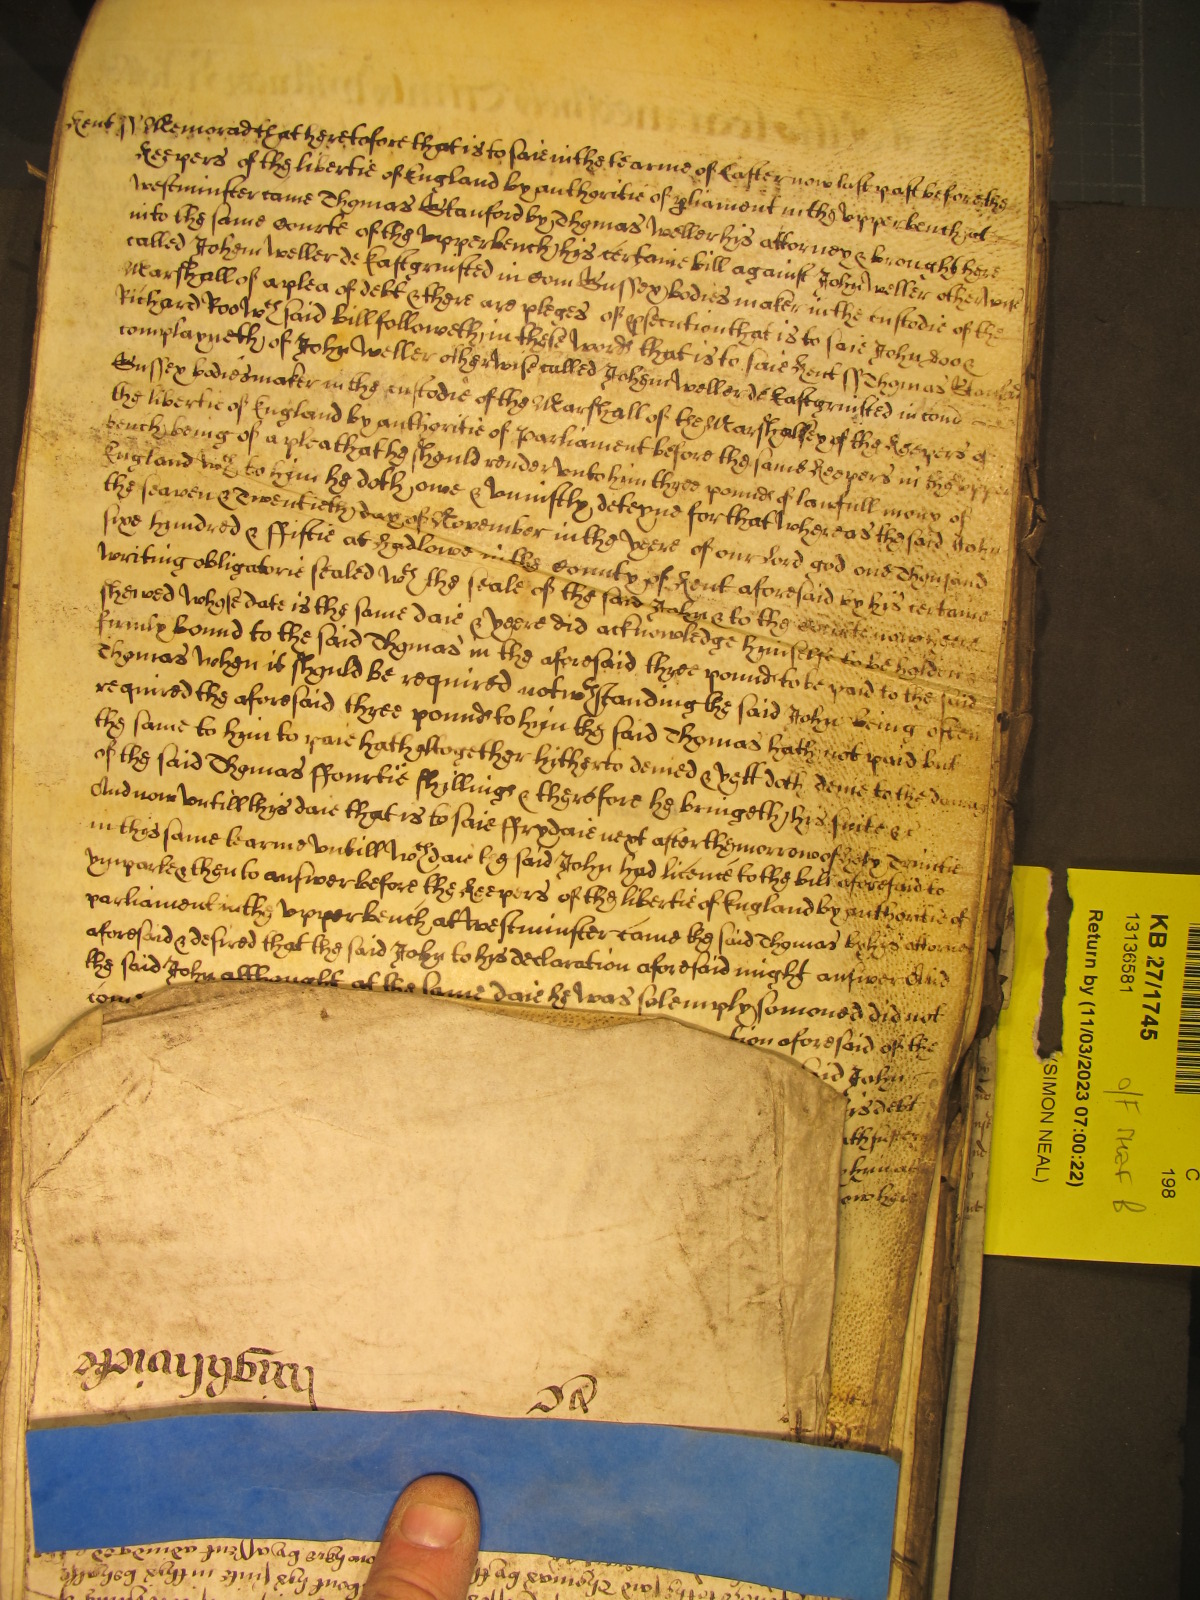 Kent ss Memorad that heretofore that is to saie in the tearme of Easter now last past before the
Keepers of the libertie of England by authoritie of pliament in the upper bench at
Westminster came Thomas Stanford by Thomas Weller his attorney & brought here
into the same Courte of the upper bench his certaine bill against John Weller otherwise
called Johem Weller de Eastgrinsted in Com Sussex bodies maker in the custodie of the
Marshall of a plea of debt & there are pleges of psecution that is to saie John Doo &
Richard Roo wch said bill followeth in these words that is to saie Kent ss Thomas Stanford
complayneth of John Weller otherwise called Johem Weller de Eastgrinsted in Com
Sussex bodies maker in the custodie of the Marshall of the Marshalsey of the Keepers of
the libertie of England by authoritie of Parliament before the same Keepers in the upper
bench being of a plea that he should render unto him three pounds of lawfull mony of
England wch to him he doth owe & uniustly deteyne for that whereas the said John
the seaven & Twentieth day of November in the yeere of our Lord god one Thousand
sixe hundred & ffiftie at Hadlowe in the County of Kent aforesaid by his certaine
writing obligatorie sealed wth the seale of the said John & to the Courte now here
shewed whose date is the same daie & yeere did acknowledge himselfe to be holden &
firmly bound to the said Thomas in the aforesaid three pounds to be paid to the said
Thomas when it should be required notwthstanding the said John being often
required the aforesaid three pounds to him the said Thomas hath not paid but
the same to him to paie hath altogether hitherto denied & yett doth denie to the damag
of the said Thomas ffourtie shillings & therefore he bringeth his suite &c
And now untill this daie that is to saie ffrydaie next after the morrow of holy Trinitie
in this same tearme untill wch daie the said John had licence to the bill aforesaid to
ymparle & then to answer before the Keepers of the libertie of England by authoritie of
parliament in the upper bench at Westminster came the said Thomas by his attorney
aforesaid & desired that the said John to his declaration aforesaid might answer And
the said John althought at the same daie he was solemply somoned did not
come
tion aforesaid of the
said John
his debt
now here
highwicke
&c
KB 27/1745
13136581
Return by (11/03/2023 07:00:22)
(SIMON NEAL)
C
198
O/F Map B